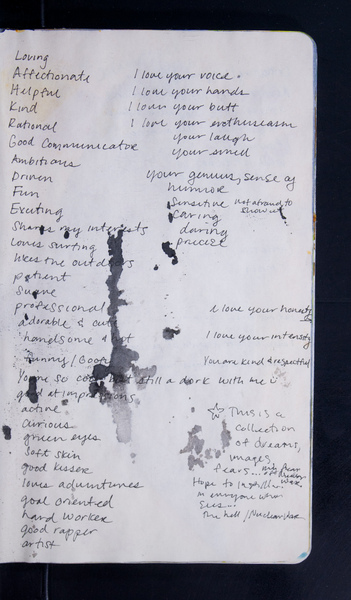 Loving
Affectionate
Helpful
Kind
Rational
Good Communicator
Ambitious
Driven
Fun
Exciting
Shares my interests
Loves surfing
likes the outdoors
patient
Suave
professional
adorable & cute
handsome
funny /
You're so cool but still a dork with me
good at impressions
active
curious
green eyes
Soft skin
good kisser
loves adventures
goal oriented
hard worker
good rapper
artist
I love your voice.
I love your hands
I love your butt
I love your enthusiasm
your laugh
your smell
your genius, sense of
humor
Sensitive not afraid to
show it
caring
daring
I love your honesty
I love your intensity
You are kind & respectful
☆ This is a
collection
of dreams,
images,
fears...
Hope to instill
in everyone who
sees...
The hell / Nuclear